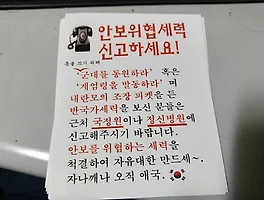 안보위협세력
신고하세요!
혼술 끄시 위해
'군대를 동원하라' 혹은
'계엄령을 발동하라' 며
내란모의 조장 피켓을 든
반국가세력을 보신 분들은
근처 국정원이나 정신병원에
신고해주시기 바랍니다.
안보를 위협하는 세력을
척결하여 자유대한 만드세~.
자나깨나 오직 애국.